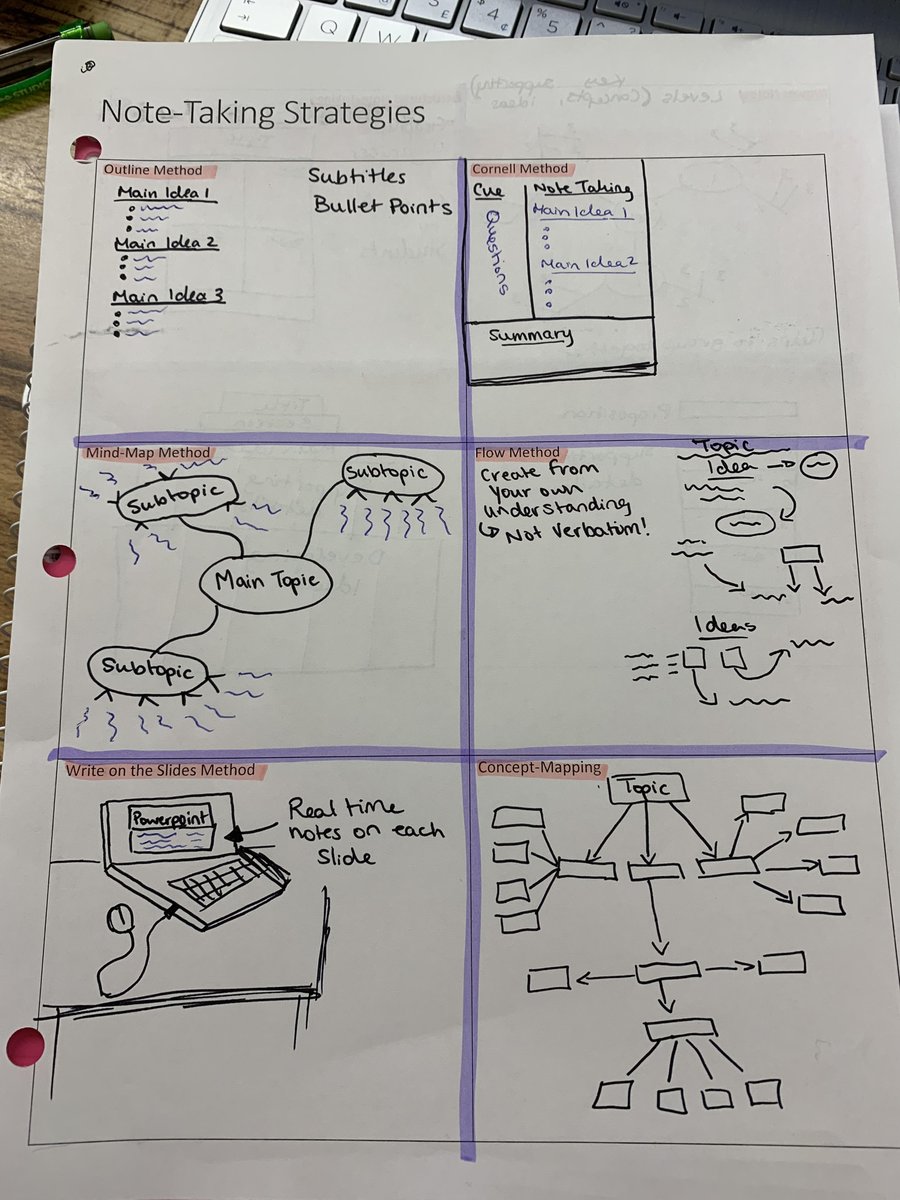 Q
W
£
3
E
$
4
¢
%
5
Note-Taking Strategies
Outline Method
Main Idea 1
Main Idea 2
Main Idea 3
Subtitles
Bullet Points
Cornell Method
Cue
Questions
Note Taking
Main Idea 1
Main Idea 2
Summary
Mind-Map Method
Subtopic
Subtopic
Main Topic
Subtopic
Flow Method
Create from
your own
understanding
↳ Not verbatum!
Topic
Idea
Ideas
Write on the Slides Method
Powerpoint
Real time
notes on each
Slide
Concept-Mapping
Topic